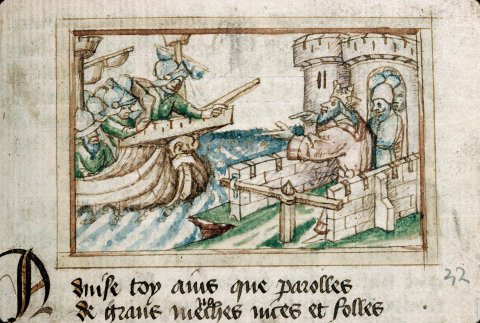 Aduise toy ains que parolles
de grans menaches nices et folles